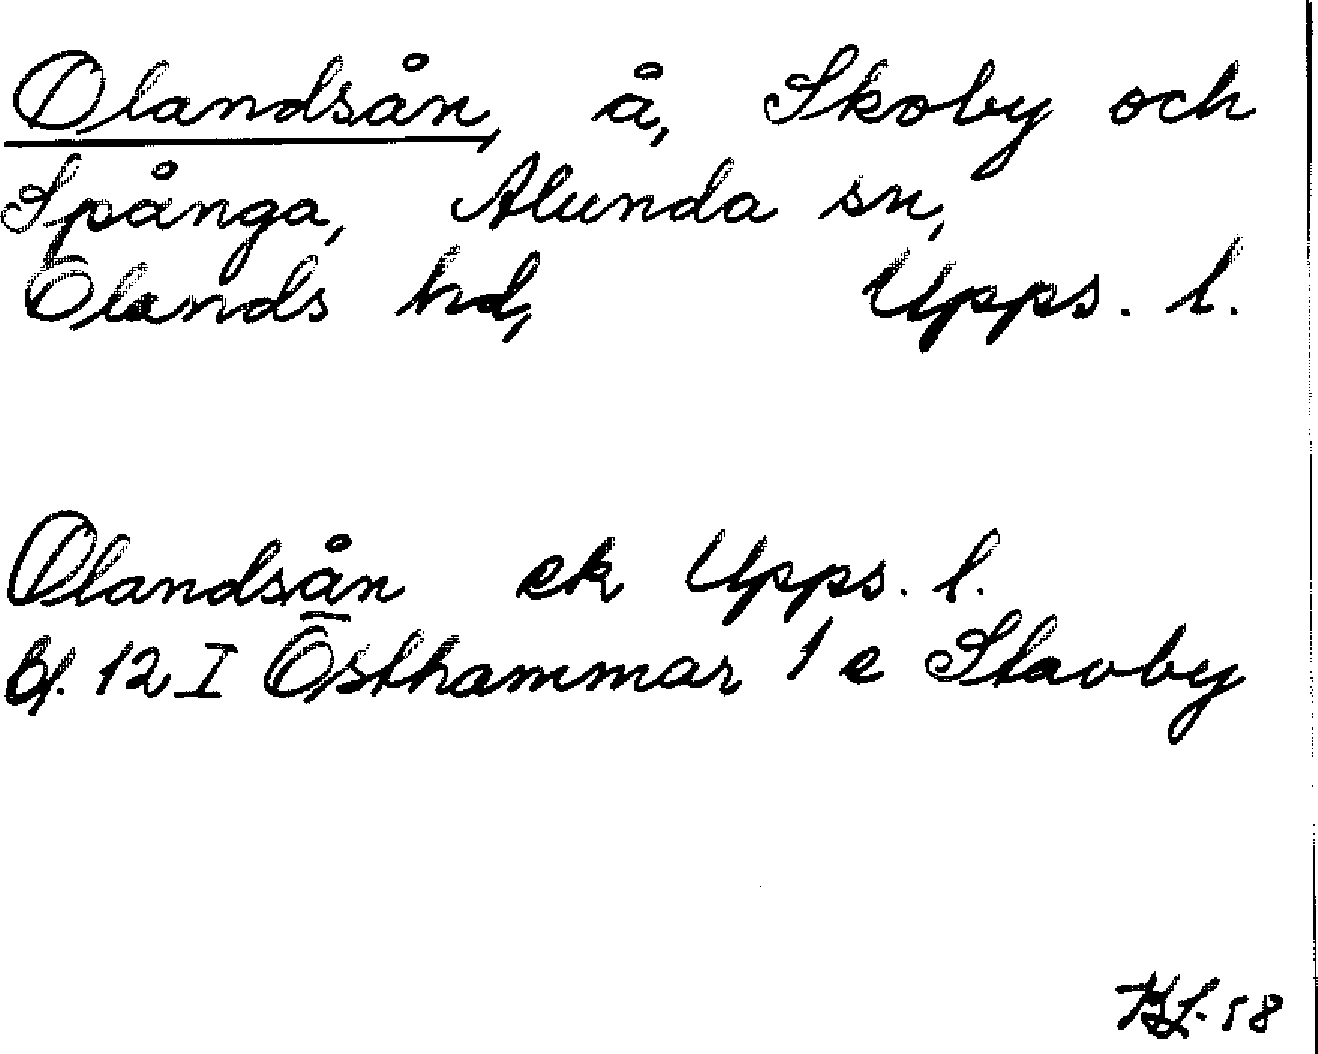 Olandsån, å, Skoby och
Spånga, Alunda sn,
Olands hd, Upps. l.
Olandsån ek Upps. l.
bl. 12 I Östhammar 1 e Stavby
58